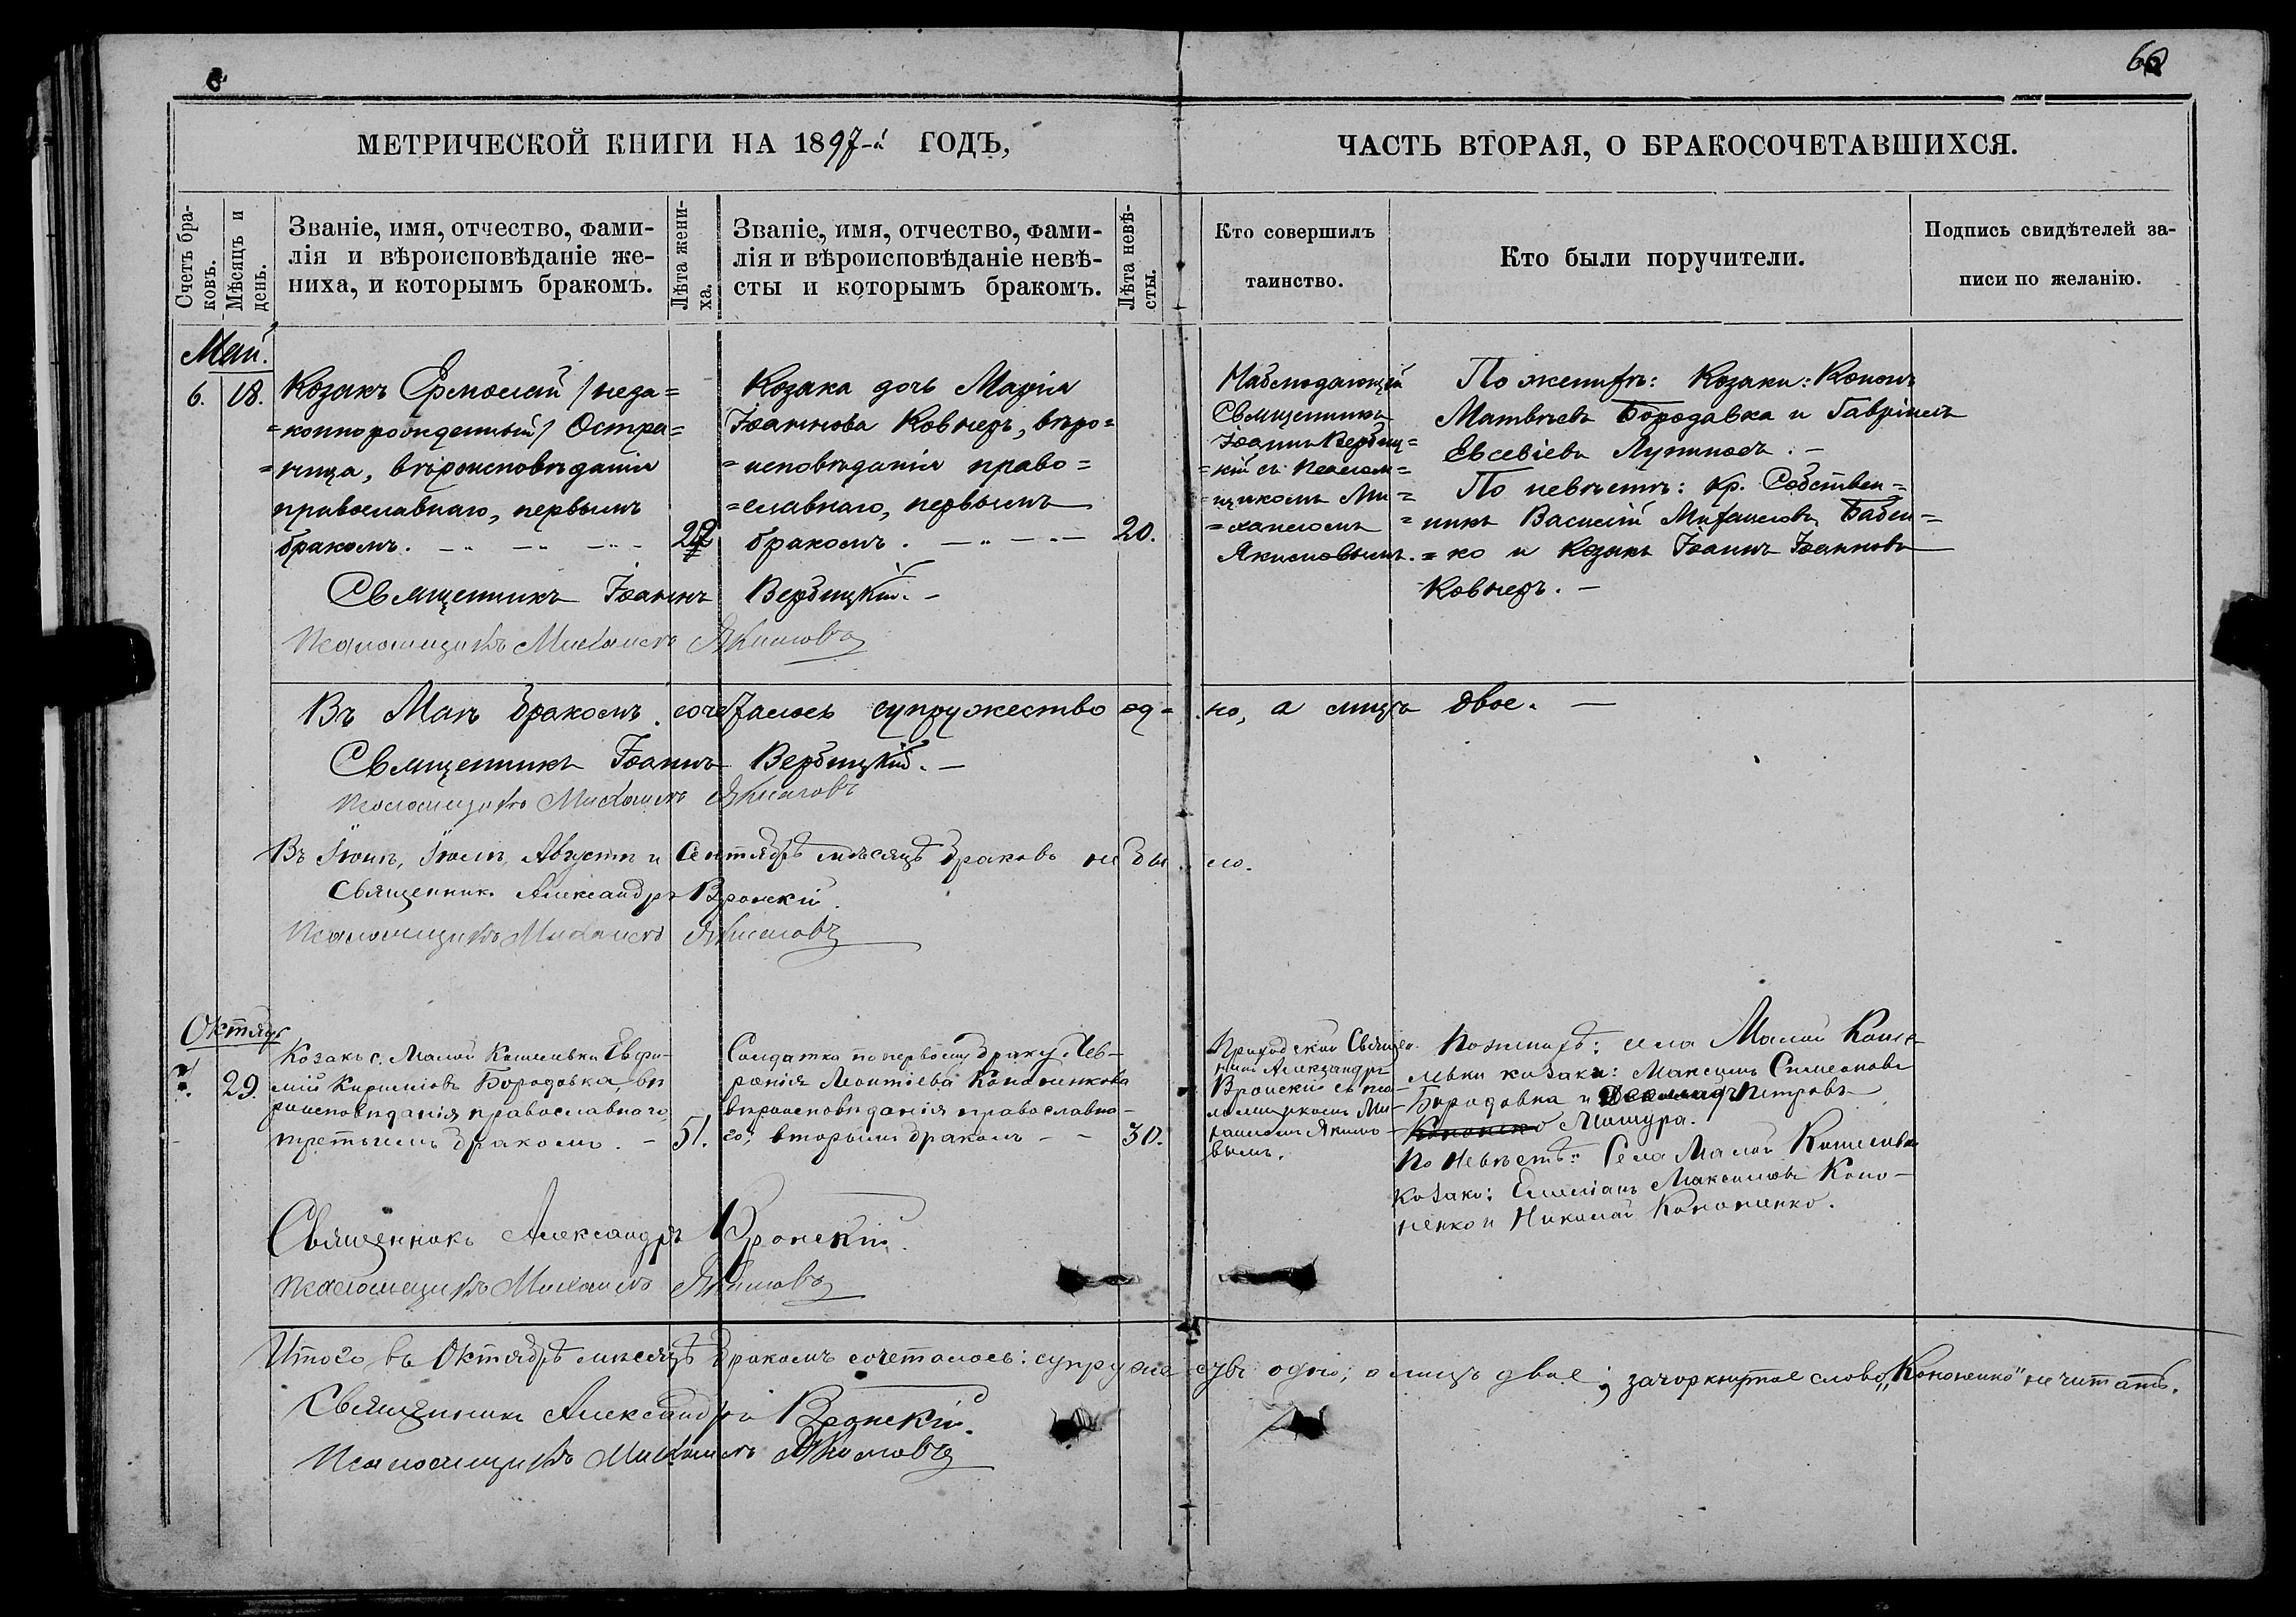 6
62
МЕТРИЧЕСКОЙ КНИГИ НА 1897-й ГОДЪ,
ЧАСТЬ ВТОРАЯ, О БРАКОСОЧЕТАВШИХСЯ.
Счетъ бра-
ковъ.
Мѣсяцъ и
день.
Званіе, имя, отчество, фами-
лія и вѣроисповѣданіе же-
ниха, и которымъ бракомъ.
Лѣта жени-
ха.
Званіе, имя, отчество, фами-
лія и вѣроисповѣданіе невѣ-
сты и которымъ бракомъ.
Лѣта невѣ-
сты.
Кто совершилъ
таинство.
Кто были поручители.
Подпись свидѣтелей за-
писи по желанію.
Май.
6. 18.
Козакъ Ермолай /неза=
=коннорожденный/ Остра=
=ница, вѣроисповѣданія
православнаго, первымъ
бракомъ.
22
Козака дочь Марія
Іоаннова Ковнеръ, вѣро=
=исповѣданія право=
=славнаго, первымъ
бракомъ.
20.
Наблюдающій
Священникъ
Іоаннъ Вербиц=
=кій съ псалом=
=щикомъ Ми=
=хаиломъ
Якимовымъ.
По женихѣ: Козаки: Кононъ
Матвѣевъ Бородавка и Гавріилъ
Евсевіевъ
По невѣстѣ: кр. Собствен=
=никъ Василій Михаиловъ Бабен=
=ко и козакъ Іоаннъ Іоанновъ
Ковнеръ. —
Священникъ Іоаннъ Вербицкій. —
Псаломщикъ Михаилъ Якимовъ
Въ Маѣ бракомъ сочеталось супружество од=но, а лицъ двое. —
Священникъ Іоаннъ Вербицкій. —
Псаломщикъ Михаилъ Якимовъ
Въ Іюнѣ, Іюлѣ, Августѣ и Сентябрѣ мѣсяцѣ браковъ не было.
Священникъ Александръ Вронскій.
Псаломщикъ Михаилъ Якимовъ
Октябр
7. 29.
Козакъ с. Малой Кошелевки Евфи-
мій Кирилловъ Бородавка, вѣ
роисповѣданія православнаго,
третьимъ бракомъ. —
51.
Солдатка по первому браку Фев-
ронія Леонтіева Кононенкова
вѣроисповѣданія православна-
го, вторымъ бракомъ — —
30.
Приходской Священ-
никъ Александръ
Вронскій съ пса-
ломщикомъ Ми-
хаиломъ Якимо-
вымъ.
По женихѣ: села Малой Коше-
левки козаки: Максимъ Симеоновъ
Бородавка и Петровъ
Кононенко Мошура.
По Невѣстѣ: Села Малой Кошелевки
козаки: Емиліанъ Максимовъ Коно-
ненко и Николай Кононенко.
Священникъ Александръ Вронскій.
Псаломщикъ Михаилъ Якимовъ
Итого въ Октябрѣ мѣсяцѣ бракомъ сочеталось: супружествъ одно; а лицъ двое; зачоркнутое слово „Кононенко" не читать.
Священникъ Александръ Вронскій.
Псаломщикъ Михаилъ Якимовъ